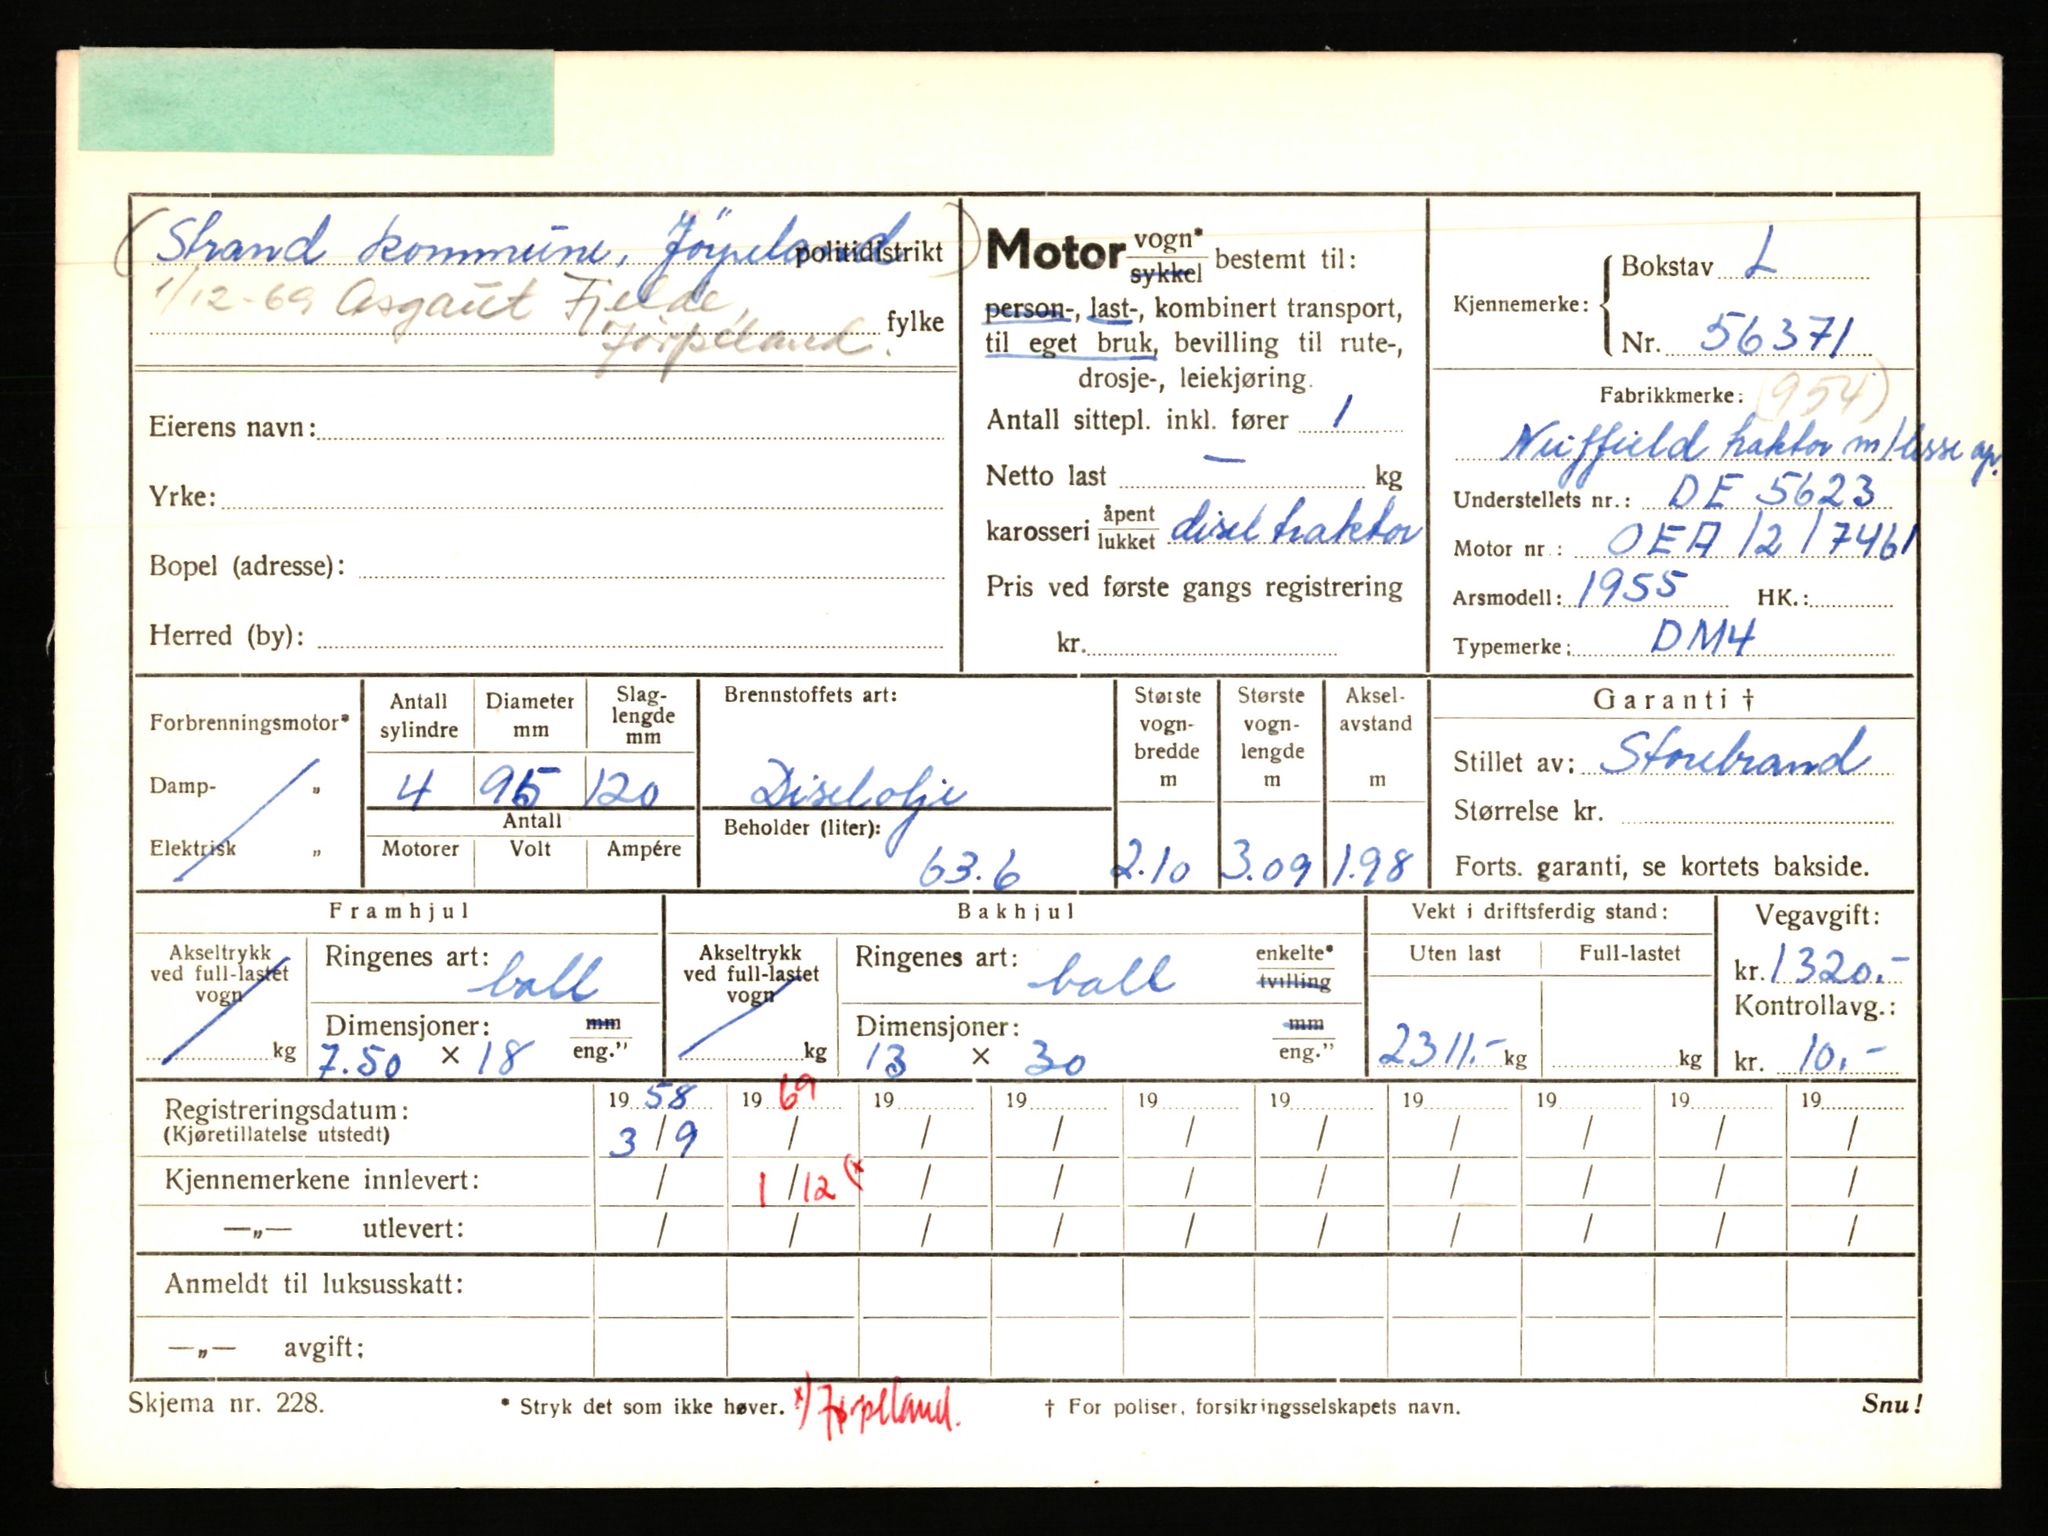 (Strand kommune, Jörpeland) politidistrikt
1/12-69 Asgaut Fjelde,
Jørpeland. fylke
Eierens navn:
Yrke:
Bopel (adresse):
Herred (by):
Motor vogn* sykkel bestemt til:
person-, last-, kombinert transport,
til eget bruk, bevilling til rute-,
drosje-, leiekjøring.
Antall sittepl. inkl. fører 1
Netto last — kg
karosseri åpent lukket disel traktor
Pris ved første gangs registrering
kr.
Kjennemerke: Bokstav L
Nr. 56371
Fabrikkmerke: (954)
Nuffield traktor m/lesse ap.
Understellets nr.: DE 5623
Motor nr.: OEA/2/7461
Arsmodell: 1955 HK.:
Typemerke: DM4
Forbrenningsmotor*
Damp- „
Elektrisk „
Antall sylindre Diameter mm Slag-lengde mm
4 95 120
Antall
Motorer Volt Ampére
Brennstoffets art:
Diselolje
Beholder (liter):
63.6
Største vogn-bredde m
2.10
Største vogn-lengde m
3.09
Aksel-avstand m
1.98
Garanti †
Stillet av: Storebrand
Størrelse kr.
Forts. garanti, se kortets bakside.
Framhjul
Akseltrykk
ved full-lastet
vogn
kg
Ringenes art: ball
Dimensjoner: mm
7.50 × 18 eng."
Bakhjul
Akseltrykk
ved full-lastet
vogn
kg
Ringenes art: ball enkelte* tvilling
Dimensjoner: mm
13 × 30 eng."
Vekt i driftsferdig stand:
Uten last Full-lastet
2311.- kg kg
Vegavgift:
kr. 1320.-
Kontrollavg.:
kr. 10.-
Registreringsdatum: 19 58 19 69 19 19 19 19 19 19 19 19
(Kjøretillatelse utstedt) 3/9 / / / / / / / / /
Kjennemerkene innlevert: / 1/12 (x / / / / / / / /
—„— utlevert: / / / / / / / / / /
Anmeldt til luksusskatt:
—„— avgift:
Skjema nr. 228. * Stryk det som ikke høver. x) Jørpeland. † For poliser, forsikringsselskapets navn. Snu!